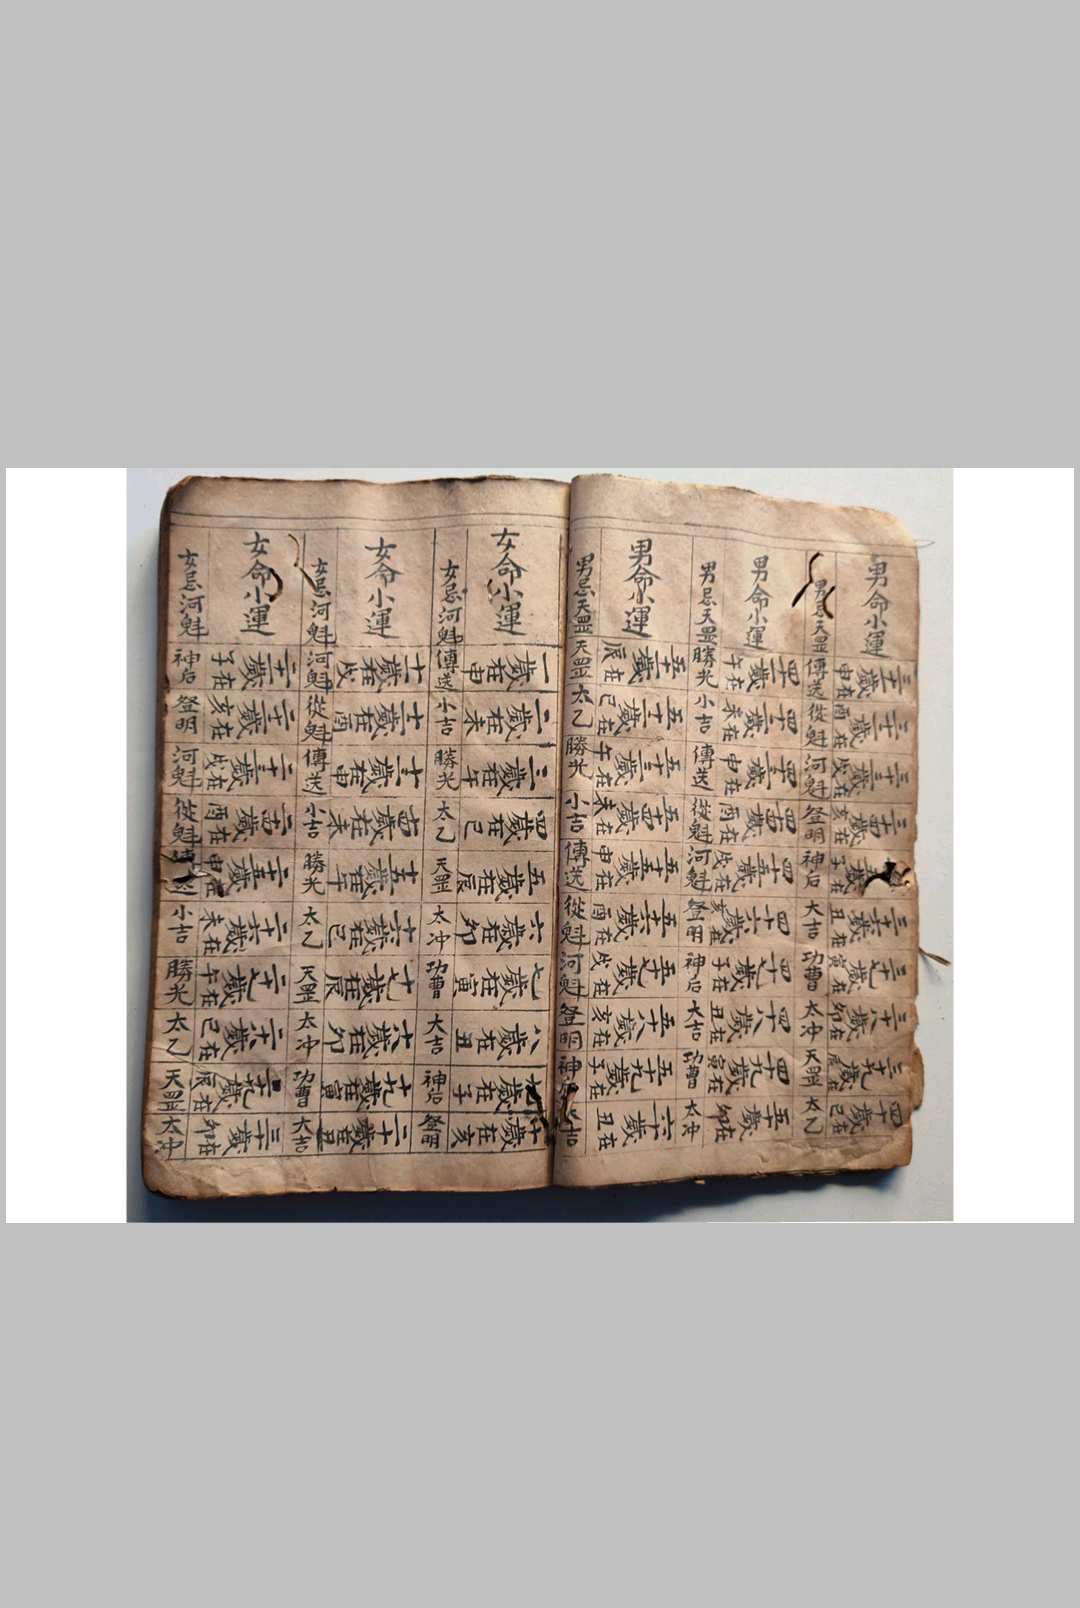 男命小運 三十一歲在申 三十二歲在酉 三十三歲在戌 三十四歲在亥 三十五歲在子 三十六歲在丑 三十七歲在寅 三十八歲在卯 三十九歲在辰 四十歲在巳
男忌天罡 傳送 從魁 河魁 登明 神后 大吉 功曹 太冲 天罡 太乙
男命小運 四十一歲在午 四十二歲在未 四十三歲在申 四十四歲在酉 四十五歲在戌 四十六歲在亥 四十七歲在子 四十八歲在丑 四十九歲在寅 五十歲在卯
男忌天罡 勝光 小吉 傳送 從魁 河魁 登明 神后 大吉 功曹 太冲
男命小運 五十一歲在辰 五十二歲在巳 五十三歲在午 五十四歲在未 五十五歲在申 五十六歲在酉 五十七歲在戌 五十八歲在亥 五十九歲在子 六十歲在丑
男忌天罡 天罡 太乙 勝光 小吉 傳送 從魁 河魁 登明 神 吉
女命小運 一歲在申 二歲在未 三歲在午 四歲在巳 五歲在辰 六歲在卯 七歲在寅 八歲在丑 九歲在子 十歲在亥
女忌河魁 傳送 小吉 勝光 太乙 天罡 太冲 功曹 大吉 神后 登明
女命小運 十一歲在戌 十二歲在酉 十三歲在申 十四歲在未 十五歲在午 十六歲在巳 十七歲在辰 十八歲在卯 十九歲在寅 二十歲在丑
女忌河魁 河魁 從魁 傳送 小吉 勝光 太乙 天罡 太冲 功曹 大吉
女命小運 二十一歲在子 二十二歲在亥 二十三歲在戌 二十四歲在酉 二十五歲在申 二十六歲在未 二十七歲在午 二十八歲在巳 二十九歲在辰 三十歲在卯
女忌河魁 神后 登明 河魁 從魁 傳送 小吉 勝光 太乙 天罡 太冲